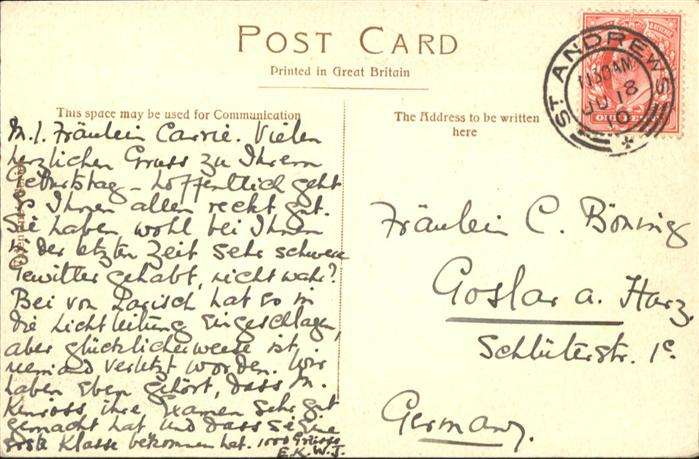 POST CARD
Printed in Great Britain
This space may be used for Communication
The Address to be written
here
ST. ANDREWS
11 30 AM
JU 18
10
M. l. Fräulein Carrie. Vielen
herzlichen Gruss zu Ihrem
Geburtstag – hoffentlich geht
es Ihnen allen recht gut.
Sie haben wohl bei Ihnen
in der letzten Zeit sehr schwere
Gewitter gehabt, nicht wahr?
Bei von hat es in
die Lichtleitung eingeschlagen,
aber glücklicherweise ist
niemand verletzt worden. Wir
haben eben gehört, dass M.
Kinross ihre Examen sehr gut
gemacht hat und dass sie eine
erste Klasse bekommen hat. 1000 Grüsse
E.K.W.J.
Fräulein C. Böning
Goslar a. Harz.
Schlüterstr. 1c.
Germany.